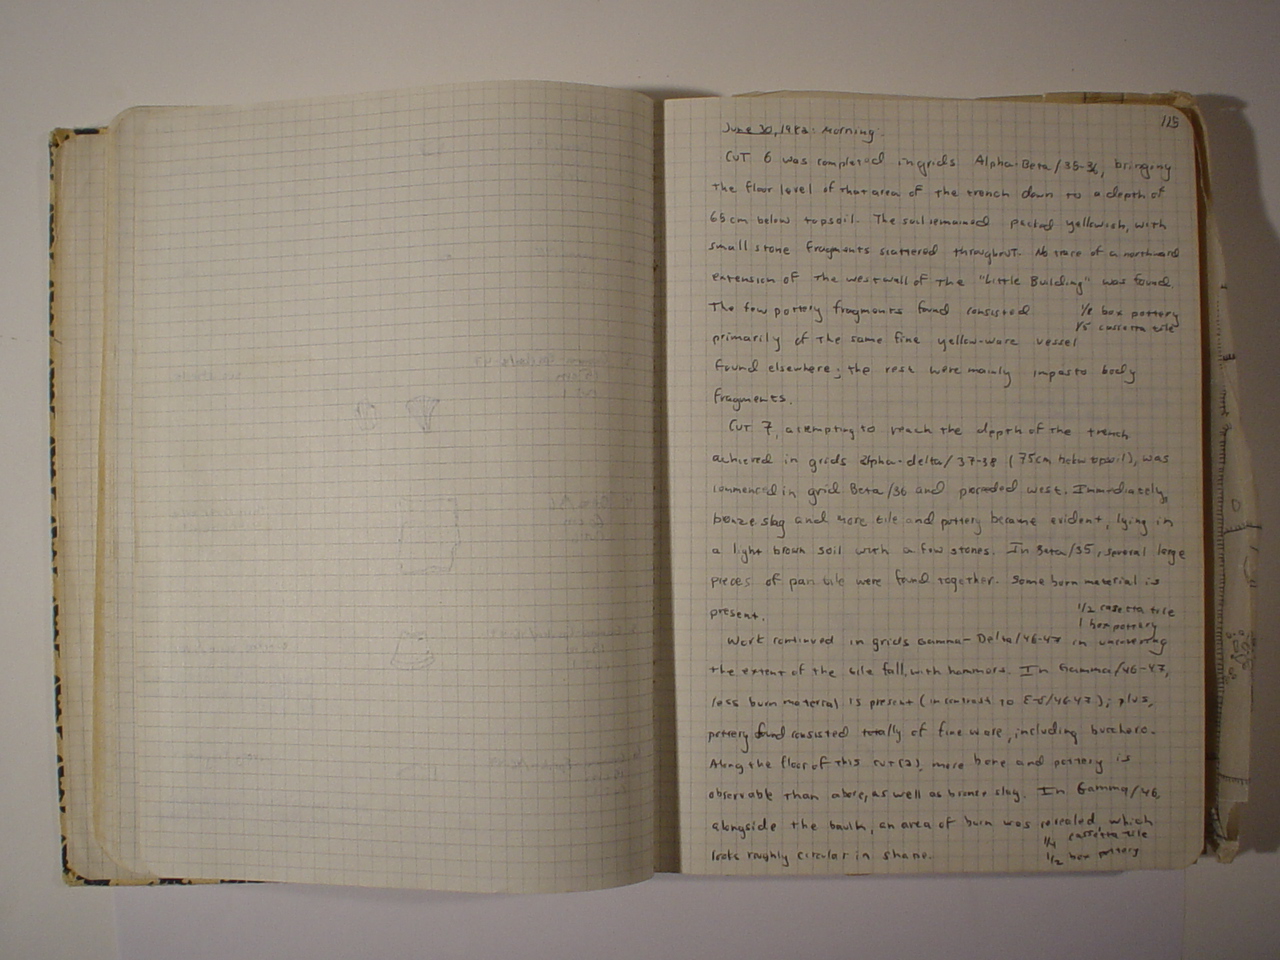 115
June 30, 1982: Morning.
CUT 6 was completed in grids Alpha-Beta/35-36, bringing
the floor level of that area of the trench down to a depth of
65cm below topsoil. The soil remained packed yellowish, with
small stone fragments scattered throughout. No trace of a northward
extension of the west wall of the "Little Building" was found.
The few pottery fragments found consisted
1/8 box pottery
1/5 cassetta tile
primarily of the same fine yellow-ware vessel
found elsewhere; the rest were mainly impasto body
fragments.
CUT 7, attempting to reach the depth of the trench
achieved in grids alpha-delta/37-38 (75cm below topsoil), was
commenced in grid Beta/36 and proceeded west. Immediately,
bonze slag and more tile and pottery became evident, lying in
a light brown soil with a few stones. In Beta/35, several large
pieces of pan tile were found together. Some burn material is
present.
1/2 casetta tile
1 box pottery
Work continued in grids Gamma-Delta/46-47 in uncovering
the extent of the tile fall, with hammers. In Gamma/46-47,
less burn material is present (in contrast to /46-47); plus,
pottery found consisted totally of fine ware, including bucchero.
Along the floor of this cut (2), more bone and pottery is
observable than above, as well as bronze slag. In Gamma/46,
alongside the baulk, an area of burn was revealed which
looks roughly circular in shape.
1/4 cassetta tile
1/2 box pottery